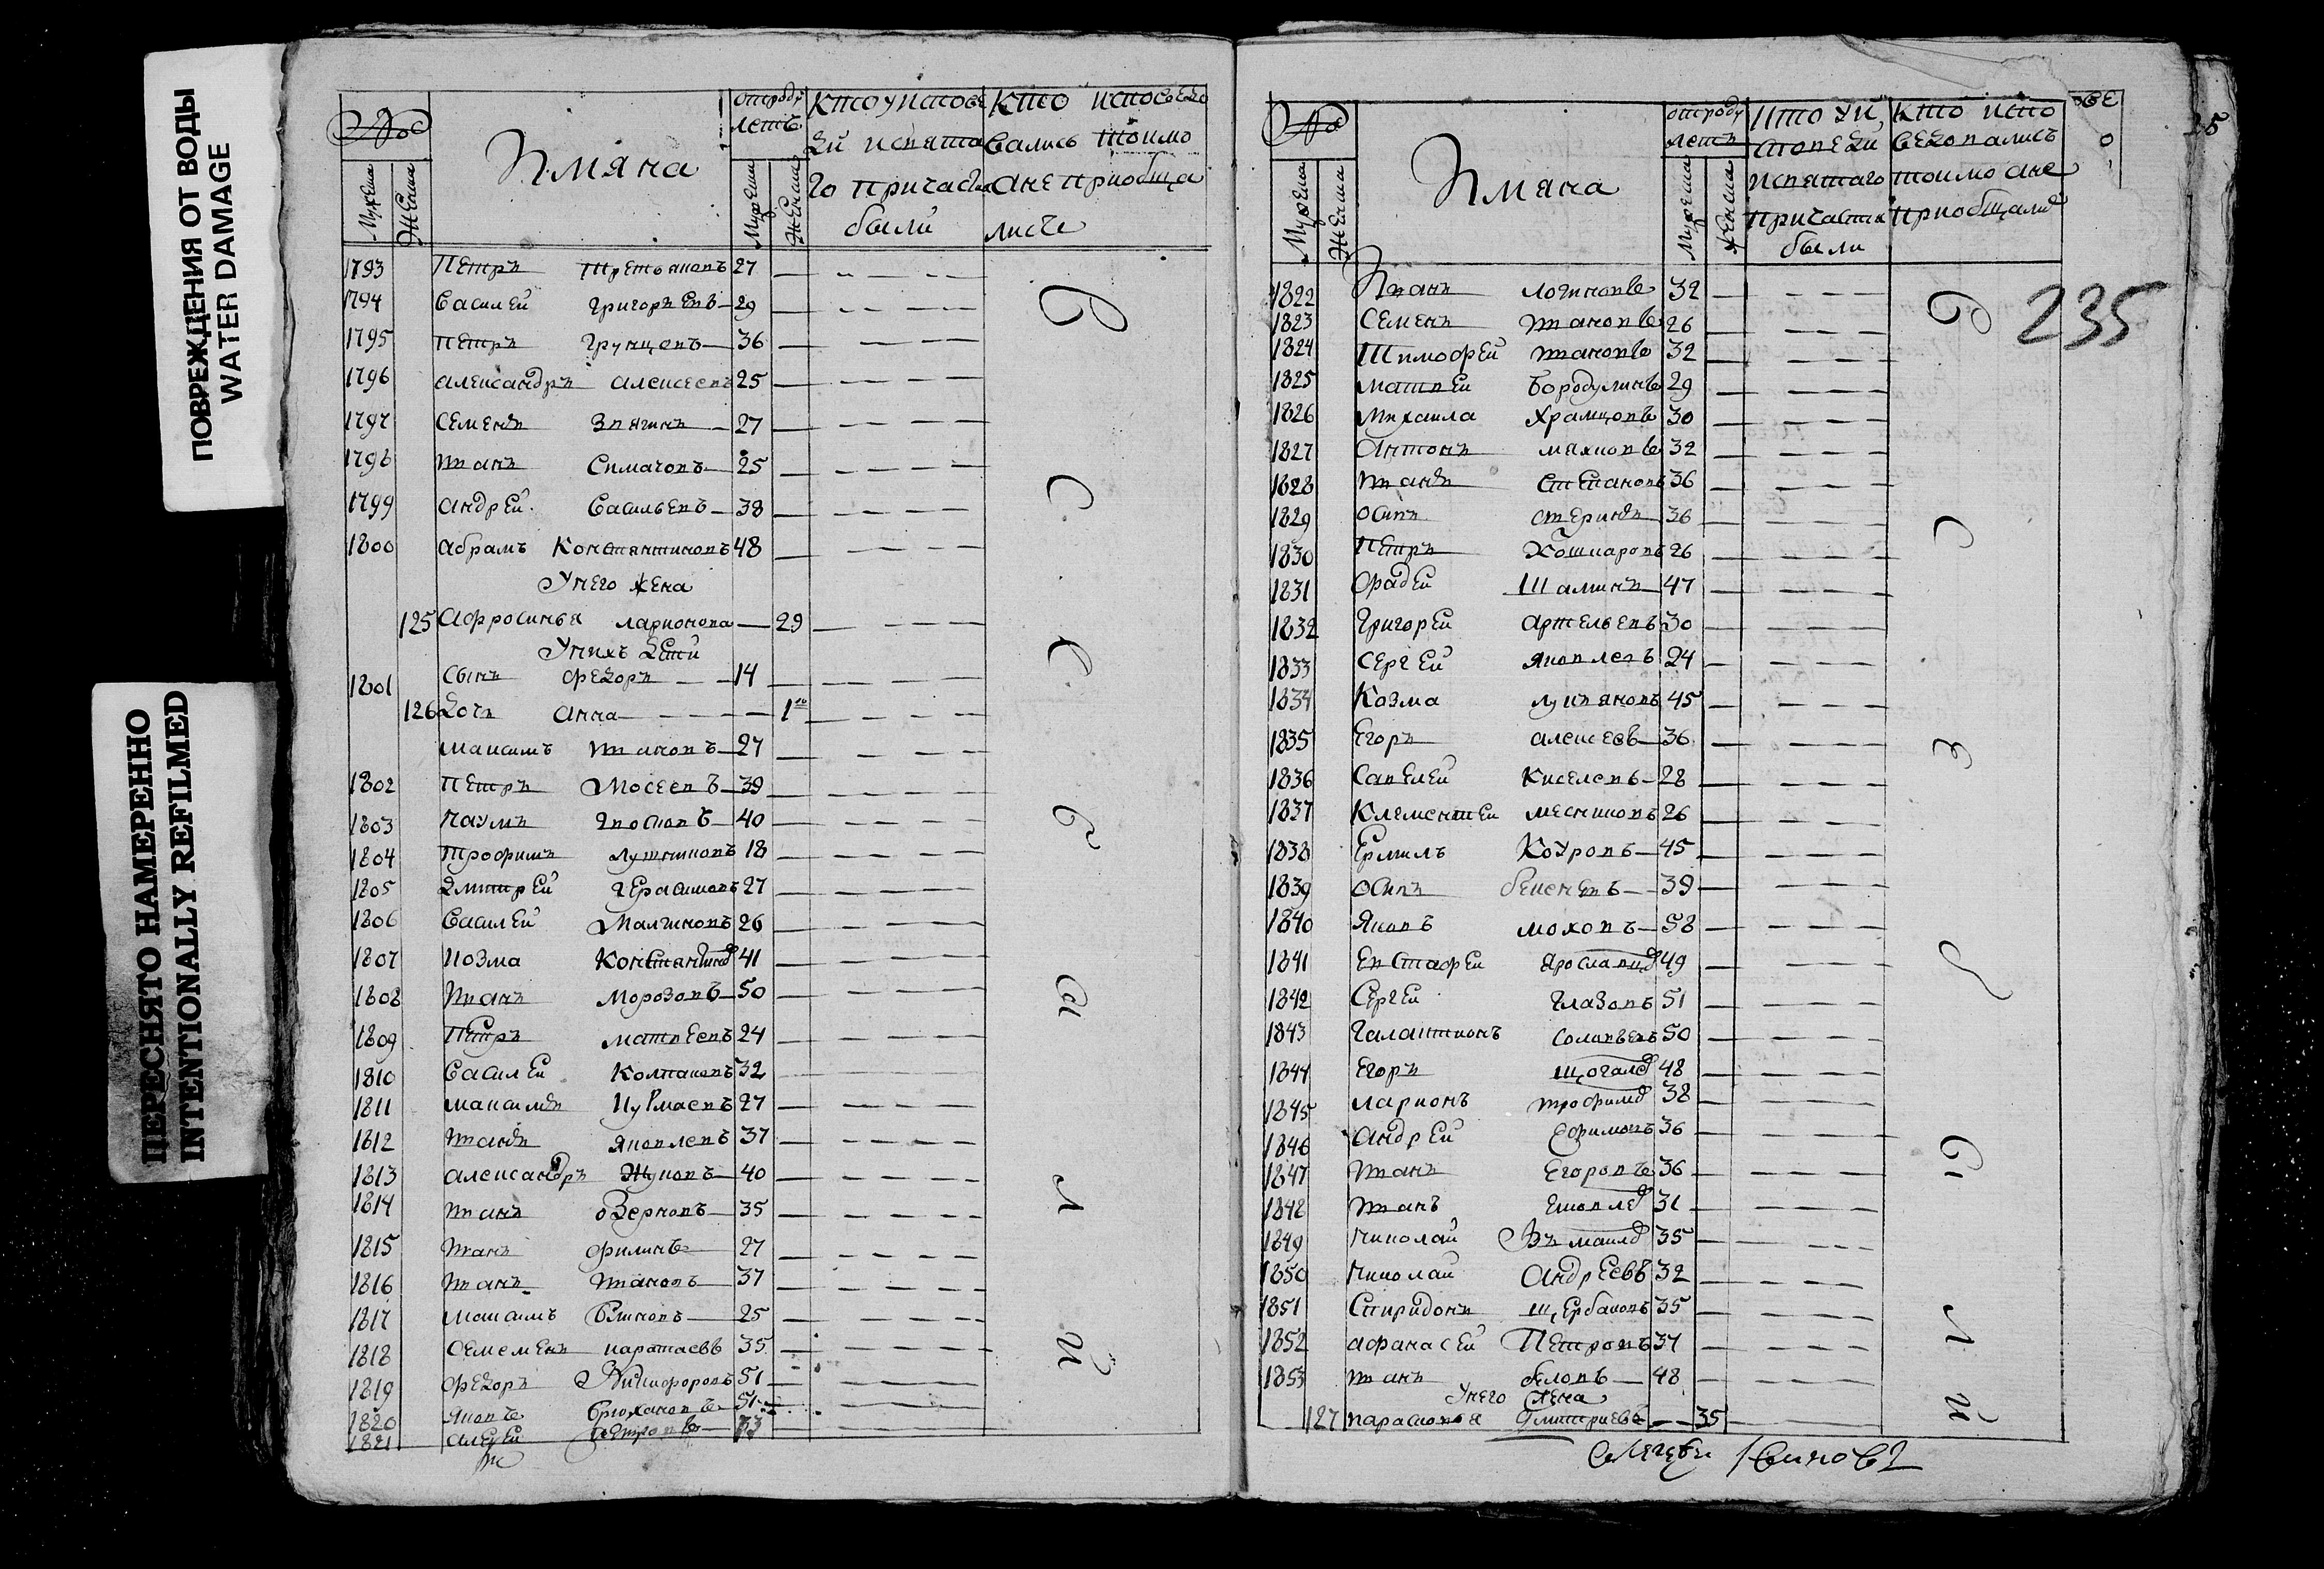 ПОВРЕЖДЕНИЯ ОТ ВОДЫ
WATER DAMAGE
ПЕРЕСНЯТО НАМЕРЕННО
INTENTIONALLY REFILMED
№
Имяна
отроду летъ
Кто у исповеди и святаго причастия были
Кто исповедовались токмо а не приобщались
Мужеска Женска
Мужеска Женска
1793 Петръ Третьяковъ 27
1794 Василей Григорьевъ 29
1795 Петръ 36
1796 Александръ Алексеевъ 25
1797 Семенъ Звягинъ 27
1798 Иванъ Симаковъ 25
1799 Андрей Васильевъ 38
1800 Абрамъ Константиновъ 48
У него жена
125 Афросинья Ларионова 29
У нихъ дети
1801 Сынъ Федоръ 14
126 Дочь Анна 1
Максимъ Ивановъ 27
1802 Петръ Мосеевъ 39
1803 Наумъ 40
1804 Трофимъ 18
1805 Дмитрей Герасимовъ 27
1806 Василей Малгиновъ 26
1807 Козма Константинов 41
1808 Иванъ Морозовъ 50
1809 Петръ Матвеевъ 24
1810 Василей Колпаковъ 32
1811 Максимъ 27
1812 Иванъ Яковлевъ 37
1813 Александръ Жуковъ 40
1814 Иванъ Озерковъ 35
1815 Иванъ Филинъ 27
1816 Иванъ Ивановъ 37
1817 Максимъ Блиновъ 25
1818 Семенъ Каратаевъ 35
1819 Федоръ Никифоровъ 51
1820 Яковъ Брюхановъ 51
1821 Петровъ 33
№
Имяна
отроду летъ
Кто у исповеди и святаго причастия были
Кто исповедовались токмо а не приобщались
Мужеска Женска
Мужеска Женска
235
25
1822 Иванъ Логиновъ 32
1823 Семенъ Ивановъ 26
1824 Тимофей Ивановъ 32
1825 Матвей Бородулинъ 29
1826 Михаила Храмцовъ 30
1827 Антонъ 32
1828 Иванъ Степановъ 36
1829 Осипъ 36
1830 Петръ Кошкаровъ 26
1831 Фадей Шаминъ 47
1832 Григорей Артельевъ 30
1833 Сергей Яковлевъ 24
1834 Козма Лукьяновъ 45
1835 Егоръ Алексеев 36
1836 Савелей Киселевъ 28
1837 Клементей Месниковъ 26
1838 Ермилъ Коуровъ 45
1839 Осипъ 39
1840 Яковъ Моховъ 58
1841 Евстафей Ярославц 49
1842 Сергей Глазовъ 51
1843 Галактионъ Соловьевъ 50
1844 Егоръ Щогалев 48
1845 Ларионъ Трофимов 38
1846 Андрей Ефимовъ 36
1847 Иванъ Егоровъ 36
1848 Иванъ 31
1849 Николай 35
1850 Николай Андреевъ 32
1851 Спиридонъ Щербаковъ 35
1852 Афанасей Петровъ 37
1853 Иванъ Беловъ 48
У него жена
127 Парасковья Дмитриева 35